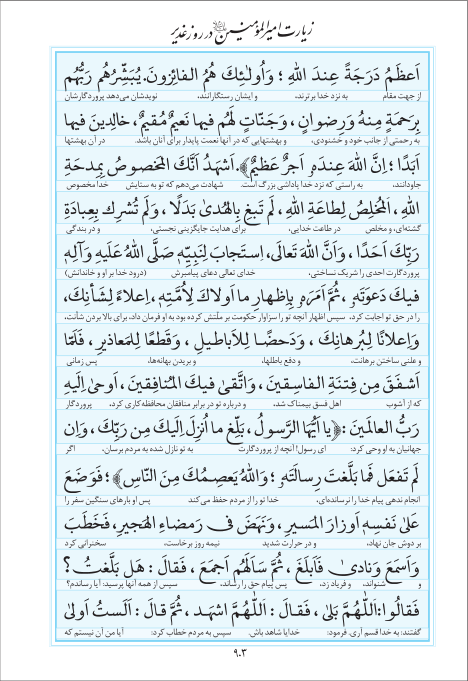 زیارت امیرالمؤمنین در روز غدیر
اَعظَمُ دَرَجَةً عِندَ اللهِ ؛ وَ اُولـٰئِكَ هُمُ الفائِزونَ. يُبَشِّرُهُم رَبُّهُم
از جهت مقام به نزد خدا برترند، و ایشان رستگارانند، نویدشان می‌دهد پروردگارشان
بِرَحمَةٍ مِنهُ وَ رِضوانٍ ، وَ جَنّاتٍ لَهُم فيها نَعيمٌ مُقيمٌ ، خالِدينَ فيها
به رحمتی از جانب خود و خشنودی، و بهشتهایی که در آنها نعمت پایدار برای آنان باشد. در آن بهشتها
اَبَدًا ؛ اِنَّ اللهَ عِندَهٗ اَجرٌ عَظيمٌ﴾. اَشهَدُ اَنَّكَ المَخصوصُ بِمِدحَةِ
جاودانند، به راستی که نزد خدا پاداشی بزرگ است. شهادت می‌دهم که تو به ستایش خدا مخصوص
اللهِ ، المُخلِصُ لِطاعَةِ اللهِ ، لَم تَبغِ بِالهُدىٰ بَدَلًا ، وَ لَم تُشرِك بِعِبادَةِ
گشته‌ای، و مخلص در طاعت خدایی، برای هدایت جایگزینی نجستی، و در بندگی
رَبِّكَ اَحَدًا ، وَ اَنَّ اللهَ تَعالىٰ، اِستَجابَ لِنَبِيِّهٖ صَلَّى اللهُ عَلَيهِ وَ آلِهٖ
پروردگارت احدی را شریک نساختی، خدای تعالی دعای پیامبرش (درود خدا بر او و خاندانش)
فيكَ دَعوَتَهٗ ، ثُمَّ اَمَرَهٗ بِاِظهارِ ما اَولاكَ لِاُمَّتِهٖ، اِعلاءً لِشَأنِكَ،
را در حق تو اجابت کرد، سپس اظهار آنچه تو را سزاوار حکومت بر ملّتش کرده بود به او فرمان داد، برای بالا بردن شأنت،
وَ اِعلانًا لِبُرهانِكَ ، وَ دَحضًا لِلاَباطيلِ ، وَ قَطعًا لِلمَعاذيرِ، فَلَمّا
و علنی ساختن برهانت، و دفع باطلها، و بریدن بهانه‌ها، پس زمانی
اَشفَقَ مِن فِتنَةِ الفاسِقينَ ، وَ اتَّقىٰ فيكَ المُنافِقينَ ، اَوحىٰ اِلَيهِ
که از آشوب اهل فسق بیمناک شد، و درباره تو در برابر منافقان محافظه‌کاری کرد، پروردگار
رَبُّ العالَمينَ : ﴿يا اَيُّهَا الرَّسولُ، بَلِّغ ما اُنزِلَ اِلَيكَ مِن رَبِّكَ ، وَ اِن
جهانیان به او وحی کرد: ای رسول! آنچه از پروردگارت به تو نازل شده به مردم برسان، اگر
لَم تَفعَل فَما بَلَّغتَ رِسالَتَهٗ ؛ وَ اللهُ يَعصِمُكَ مِنَ النّاسِ﴾ ؛ فَوَضَعَ
انجام ندهی پیام خدا را نرسانده‌ای، خدا تو را از مردم حفظ می‌کند پس او بارهای سنگین سفر را
عَلىٰ نَفسِهٖ اَوزارَ المَسيرِ ، وَ نَهَضَ فى رَمضاءِ الهَجيرِ، فَخَطَبَ
بر دوش جان نهاد، و در حرارت شدید نیمه روز برخاست، سخنرانی کرد
وَ اَسمَعَ وَ نادىٰ فَاَبلَغَ ، ثُمَّ سَاَلَهُم اَجمَعَ ، فَقالَ : هَل بَلَّغتُ ؟
و شنواند، و فریاد زد، پس پیام حق را رساند، سپس از همه آنها پرسید: آیا رساندم؟
فَقالوا: اَللّٰهُمَّ بَلىٰ ، فَقالَ : اَللّٰهُمَّ اشهَد ، ثُمَّ قالَ : اَلَستُ اَولىٰ
گفتند: به خدا قسم آری. فرمود: خدایا شاهد باش، سپس به مردم خطاب کرد: آیا من آن نیستم که
۹۰۳